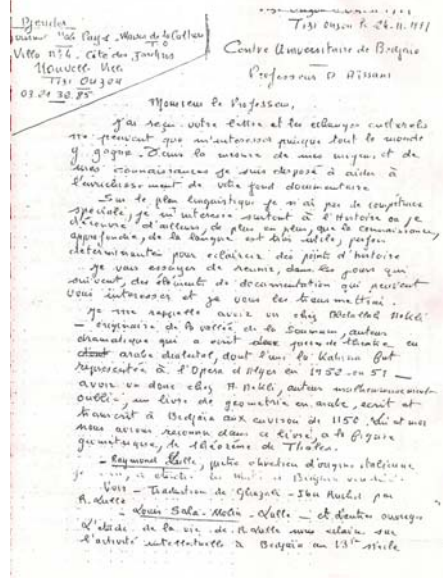 Tizi Ouzou le 24.11.
Maison de la Culture
Villa N°4. Cité des Jardins
Nouvelle Ville
Tizi Ouzou
03.21.32.85
Centre Universitaire de Bedjaia
Professeur D Aïssani
Monsieur le Professeur,
J'ai reçu votre lettre et les échanges culturels
ne peuvent que m'interesser puisque tout le monde
y gagne. Dans la mesure de mes moyens et de
mes connaissances je suis disposé à aider à
l'enrichissement de votre fond documentaire
Sur le plan linguistique je n'ai pas de compétence
spéciale, je m'intéresse surtout à l'Histoire où je
découvre, d'ailleurs, de plus en plus, que la connaissance,
approfondie, de la langue est très utile, parfois
déterminante pour eclaircir des points d'histoire
Je vais essayer de reunir, dans les jours qui
suivent, des éléments de documentation qui peuvent
vous intéresser et je vous les transmettrai.
Je me rappelle avoir vu chez Abdallah Nekli
– originaire de la vallée de la Soummam, auteur
dramatique qui a écrit deux pièces de théâtre en
arabe dialectal, dont l'une la Kahina fut
représentée à l'Opera d'Alger en 1952-ou 51 –
avoir vu donc chez A Nekli, auteur malheureusement
oublié, un livre de géometrie en arabe, ecrit et
transcrit à Bedjaïa aux environ de 1150. Lui et moi
nous avions reconnu dans ce livre, à la figure
géométrique, le théorème de Thalès.
– Raymond Lulle, chrétien d'origine
à Bedjaia
Voir – Traduction de Ghazali – Ibn Rushd par
R. Lulle
– Louis Sala-Molin – Lulle – et d'autres ouvrages
L'étude de la vie de R Lulle nous éclaire sur
l'activité intellectuelle à Bedjaïa au 13e siècle